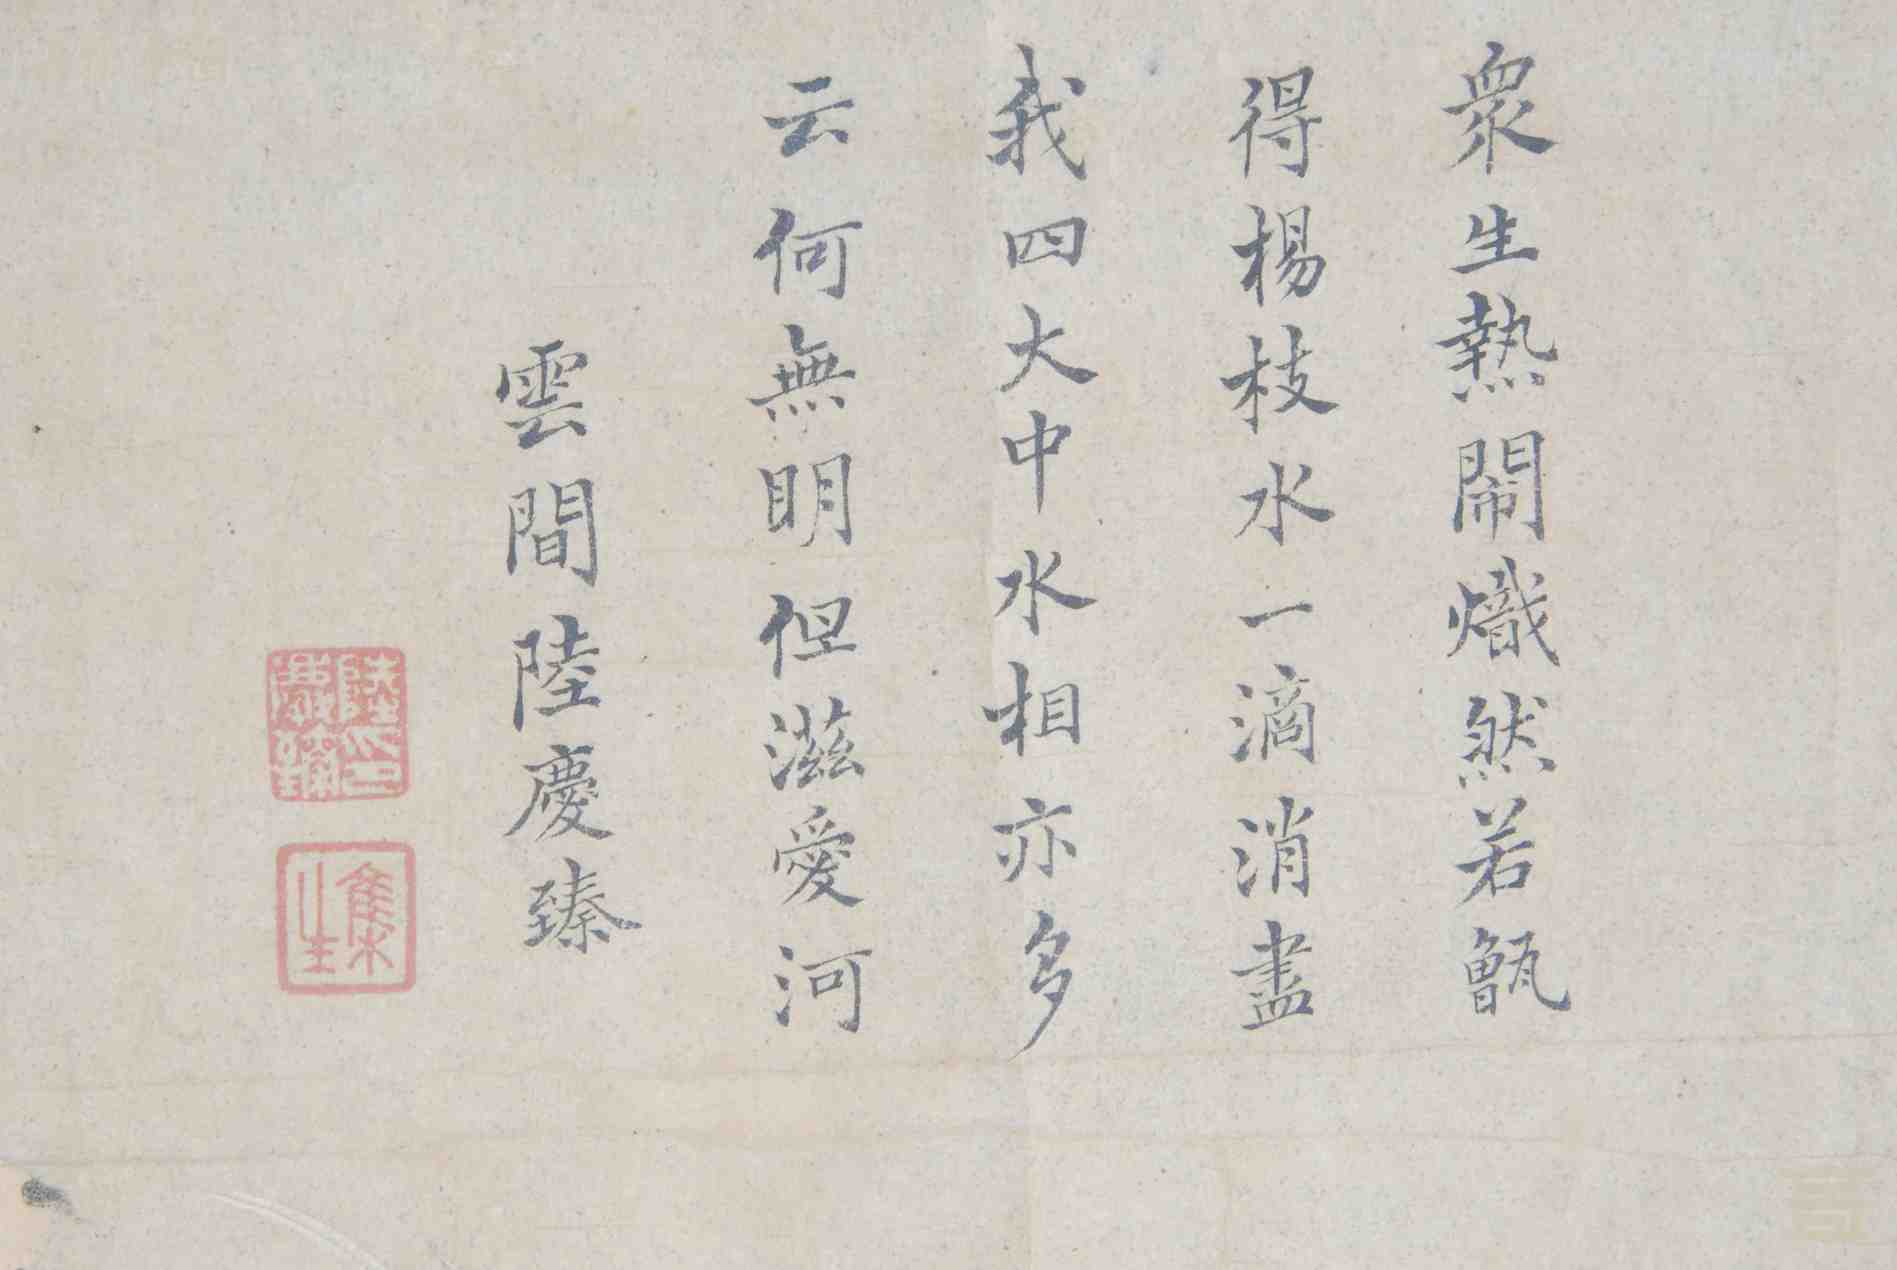 衆生熱鬧熾然若甑
得楊枝水一滴消盡
我四大中水相亦多
云何無明但滋愛河
雲間陸慶臻
陸慶臻印
集生